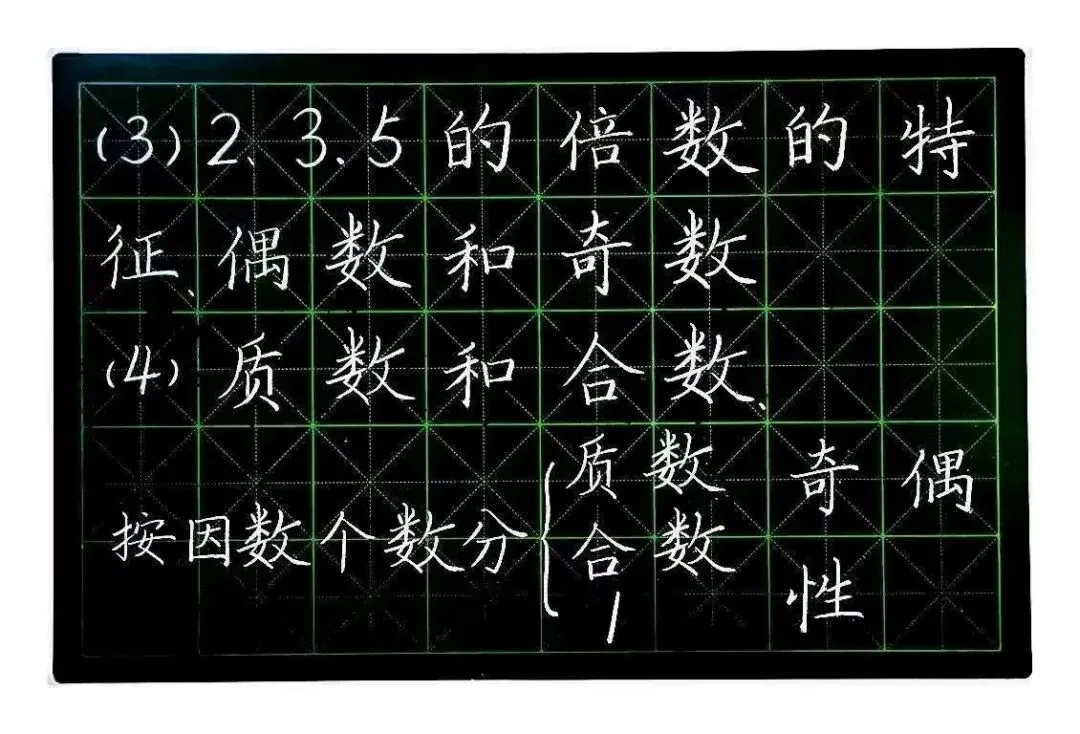 (3) 2、3、5的倍数的特
征、偶数和奇数
(4) 质数和合数、
按因数个数分{质数
合数
1
奇偶
性